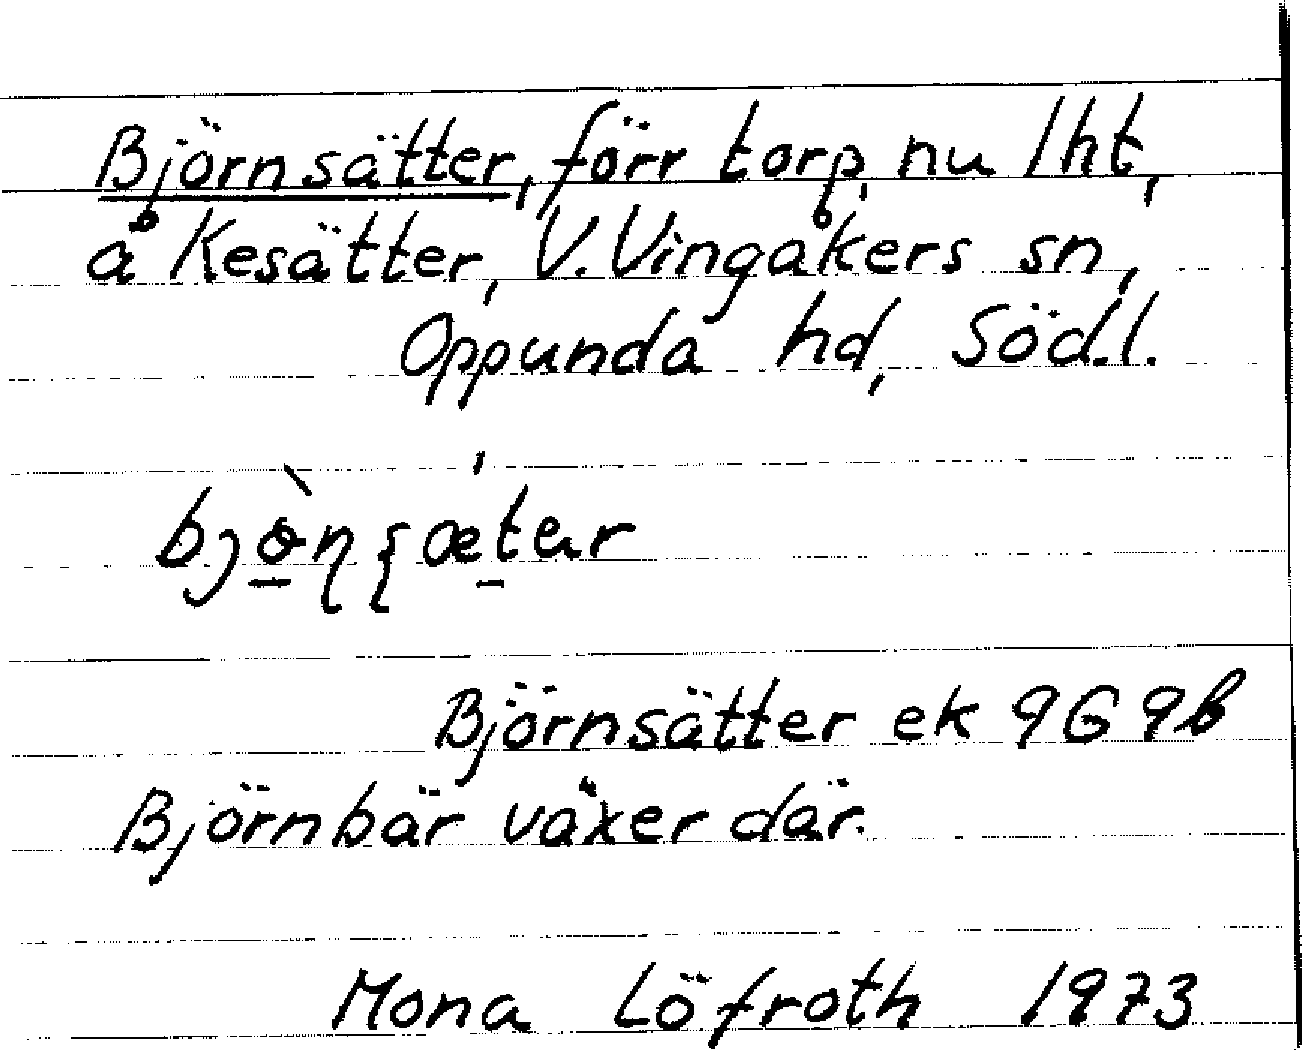 Björnsätter, förr torp, nu lht,
å Kesätter, V. Vingåkers sn,
Oppunda hd, Södl.
Björnsätter ek 9G 9b
Björnbär växer där.
Mona Löfroth 1973